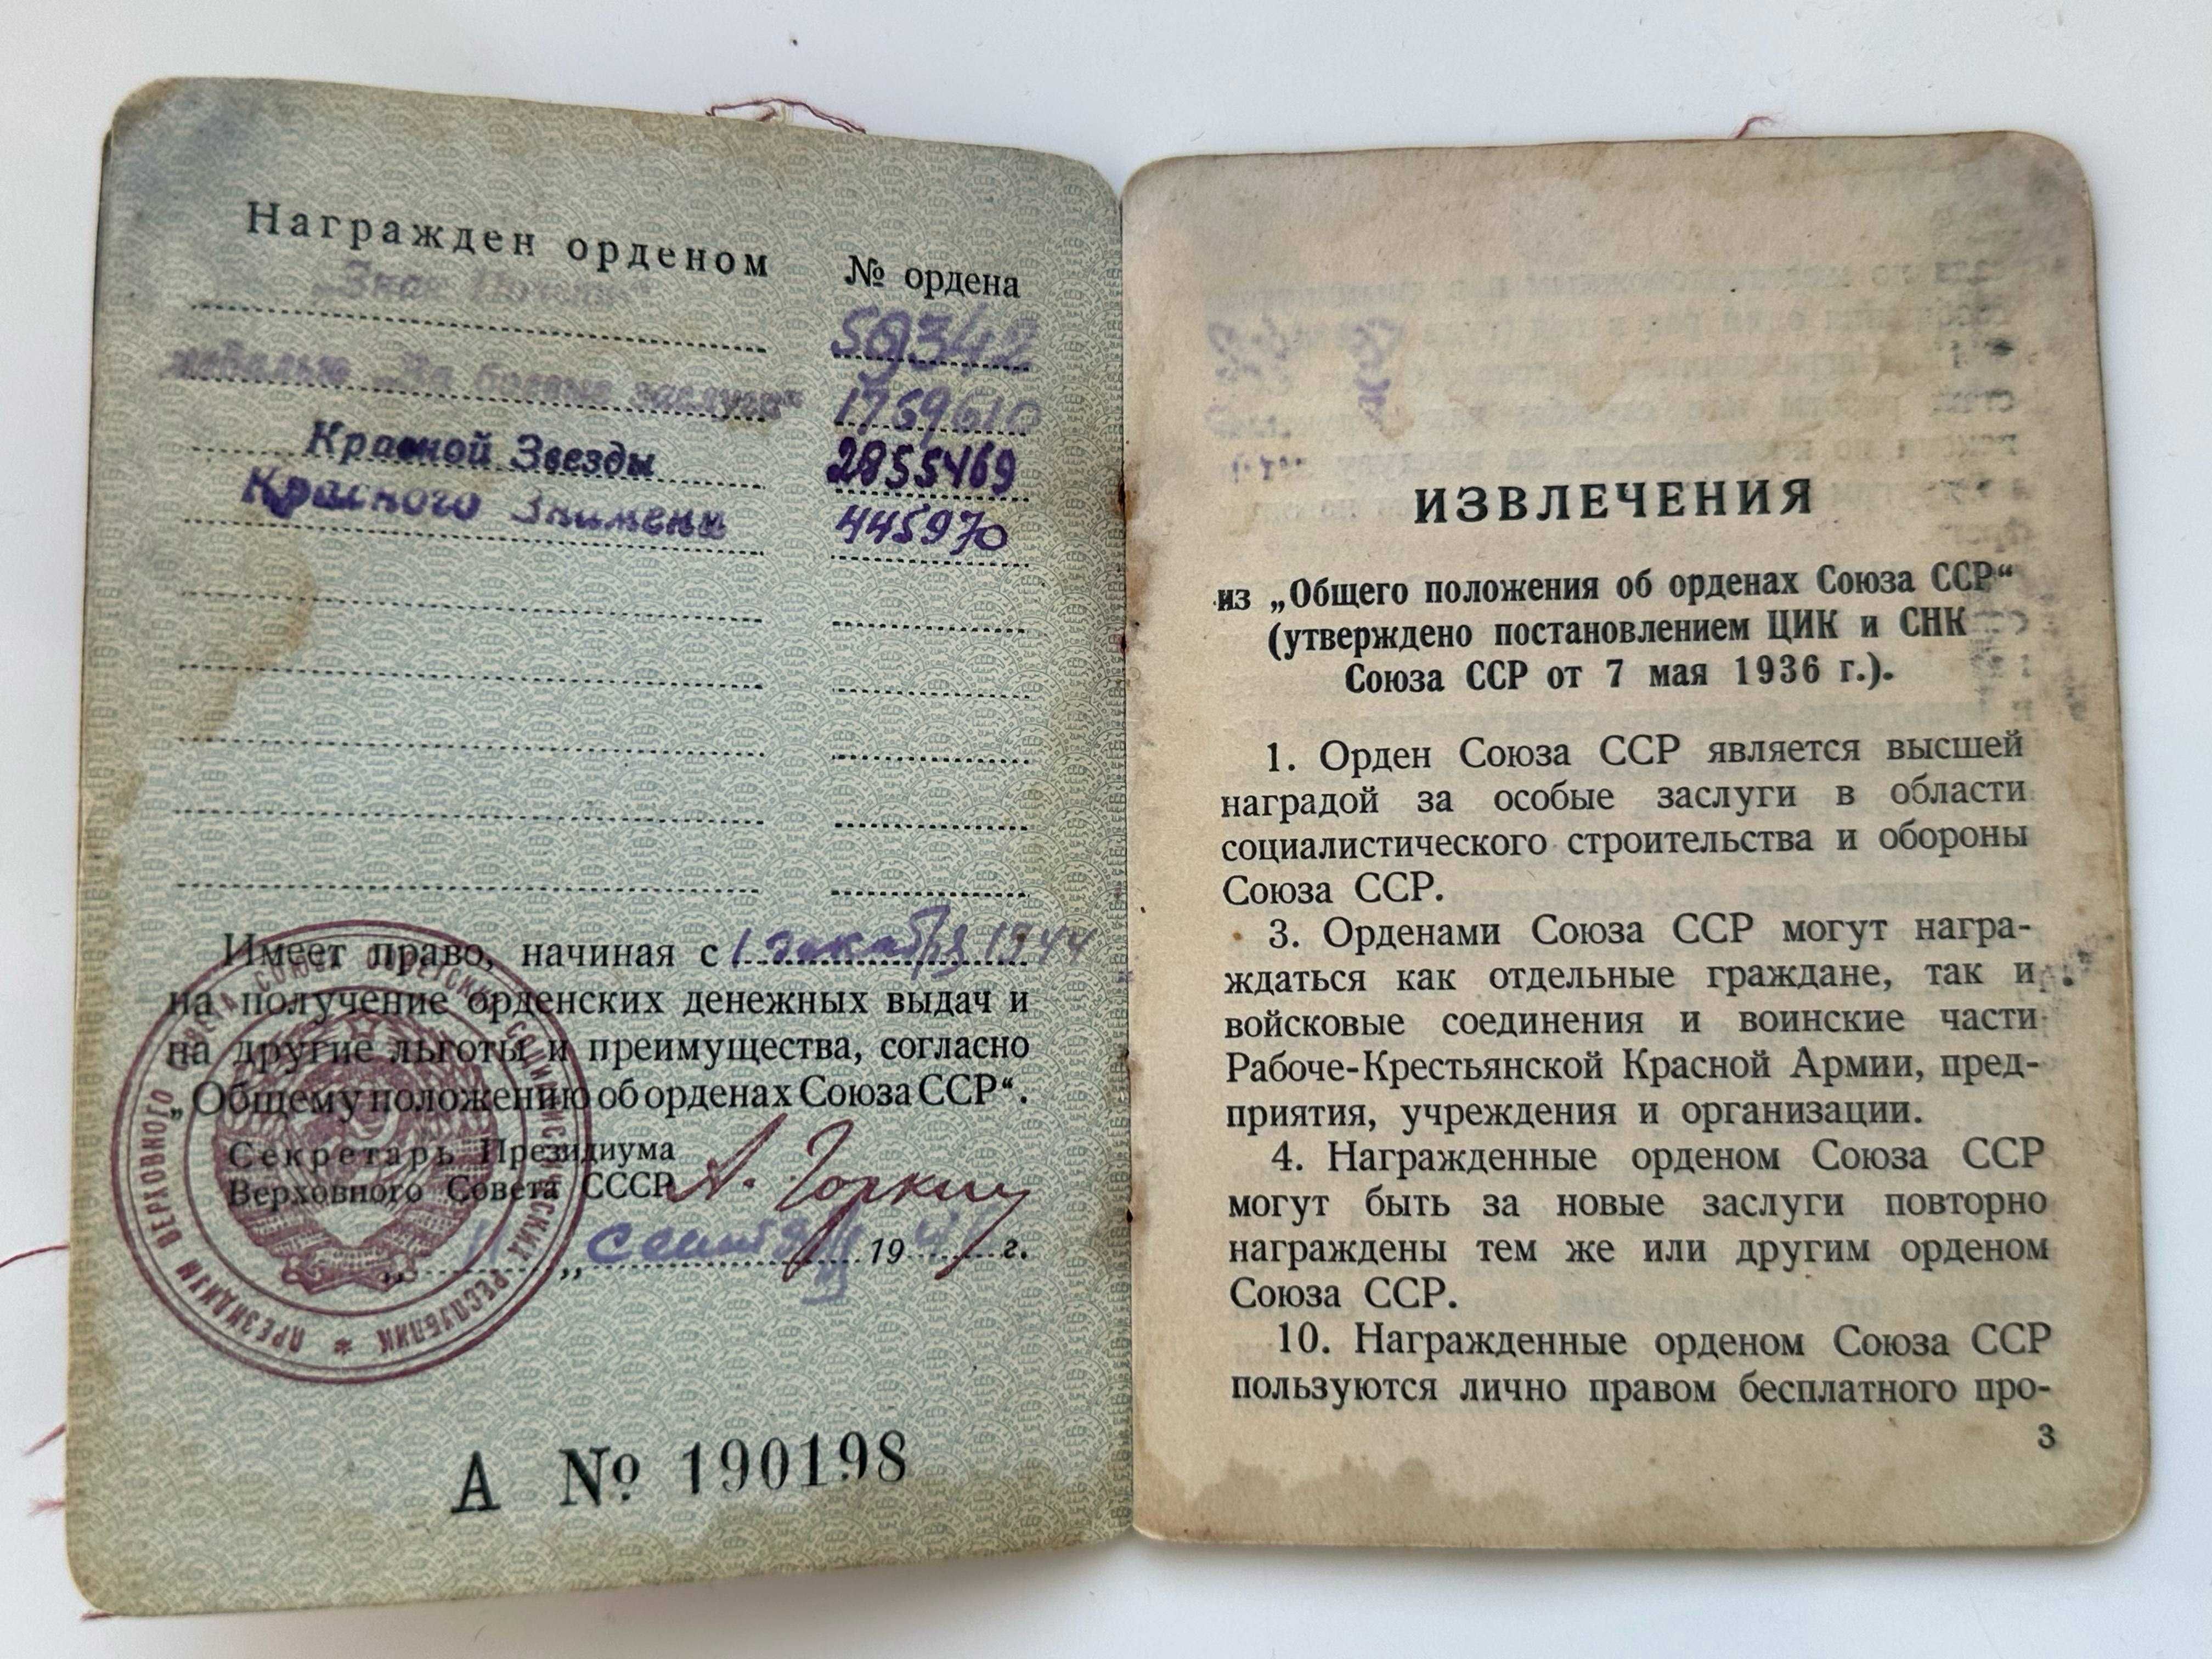 Награжден орденом
№ ордена
„Знак Почета“
59342
медалью „За боевые заслуги“
1759610
Красной Звезды
2855469
Красного Знамени
445970
Имеет право, начиная с 1 декабря 1944
на получение орденских денежных выдач и
на другие льготы и преимущества, согласно
„Общему положению об орденах Союза ССР“.
Секретарь Президиума
Верховного Совета СССР А. Горкин
„ „ 19 г.
ПРЕЗИДИУМ ВЕРХОВНОГО СОВЕТА СОЮЗА СОВЕТСКИХ СОЦИАЛИСТИЧЕСКИХ РЕСПУБЛИК *
А № 190198
ИЗВЛЕЧЕНИЯ
из „Общего положения об орденах Союза ССР“
(утверждено постановлением ЦИК и СНК
Союза ССР от 7 мая 1936 г.).
1. Орден Союза ССР является высшей
наградой за особые заслуги в области
социалистического строительства и обороны
Союза ССР.
3. Орденами Союза ССР могут награ-
ждаться как отдельные граждане, так и
войсковые соединения и воинские части
Рабоче-Крестьянской Красной Армии, пред-
приятия, учреждения и организации.
4. Награжденные орденом Союза ССР
могут быть за новые заслуги повторно
награждены тем же или другим орденом
Союза ССР.
10. Награжденные орденом Союза ССР
пользуются лично правом бесплатного про-
3